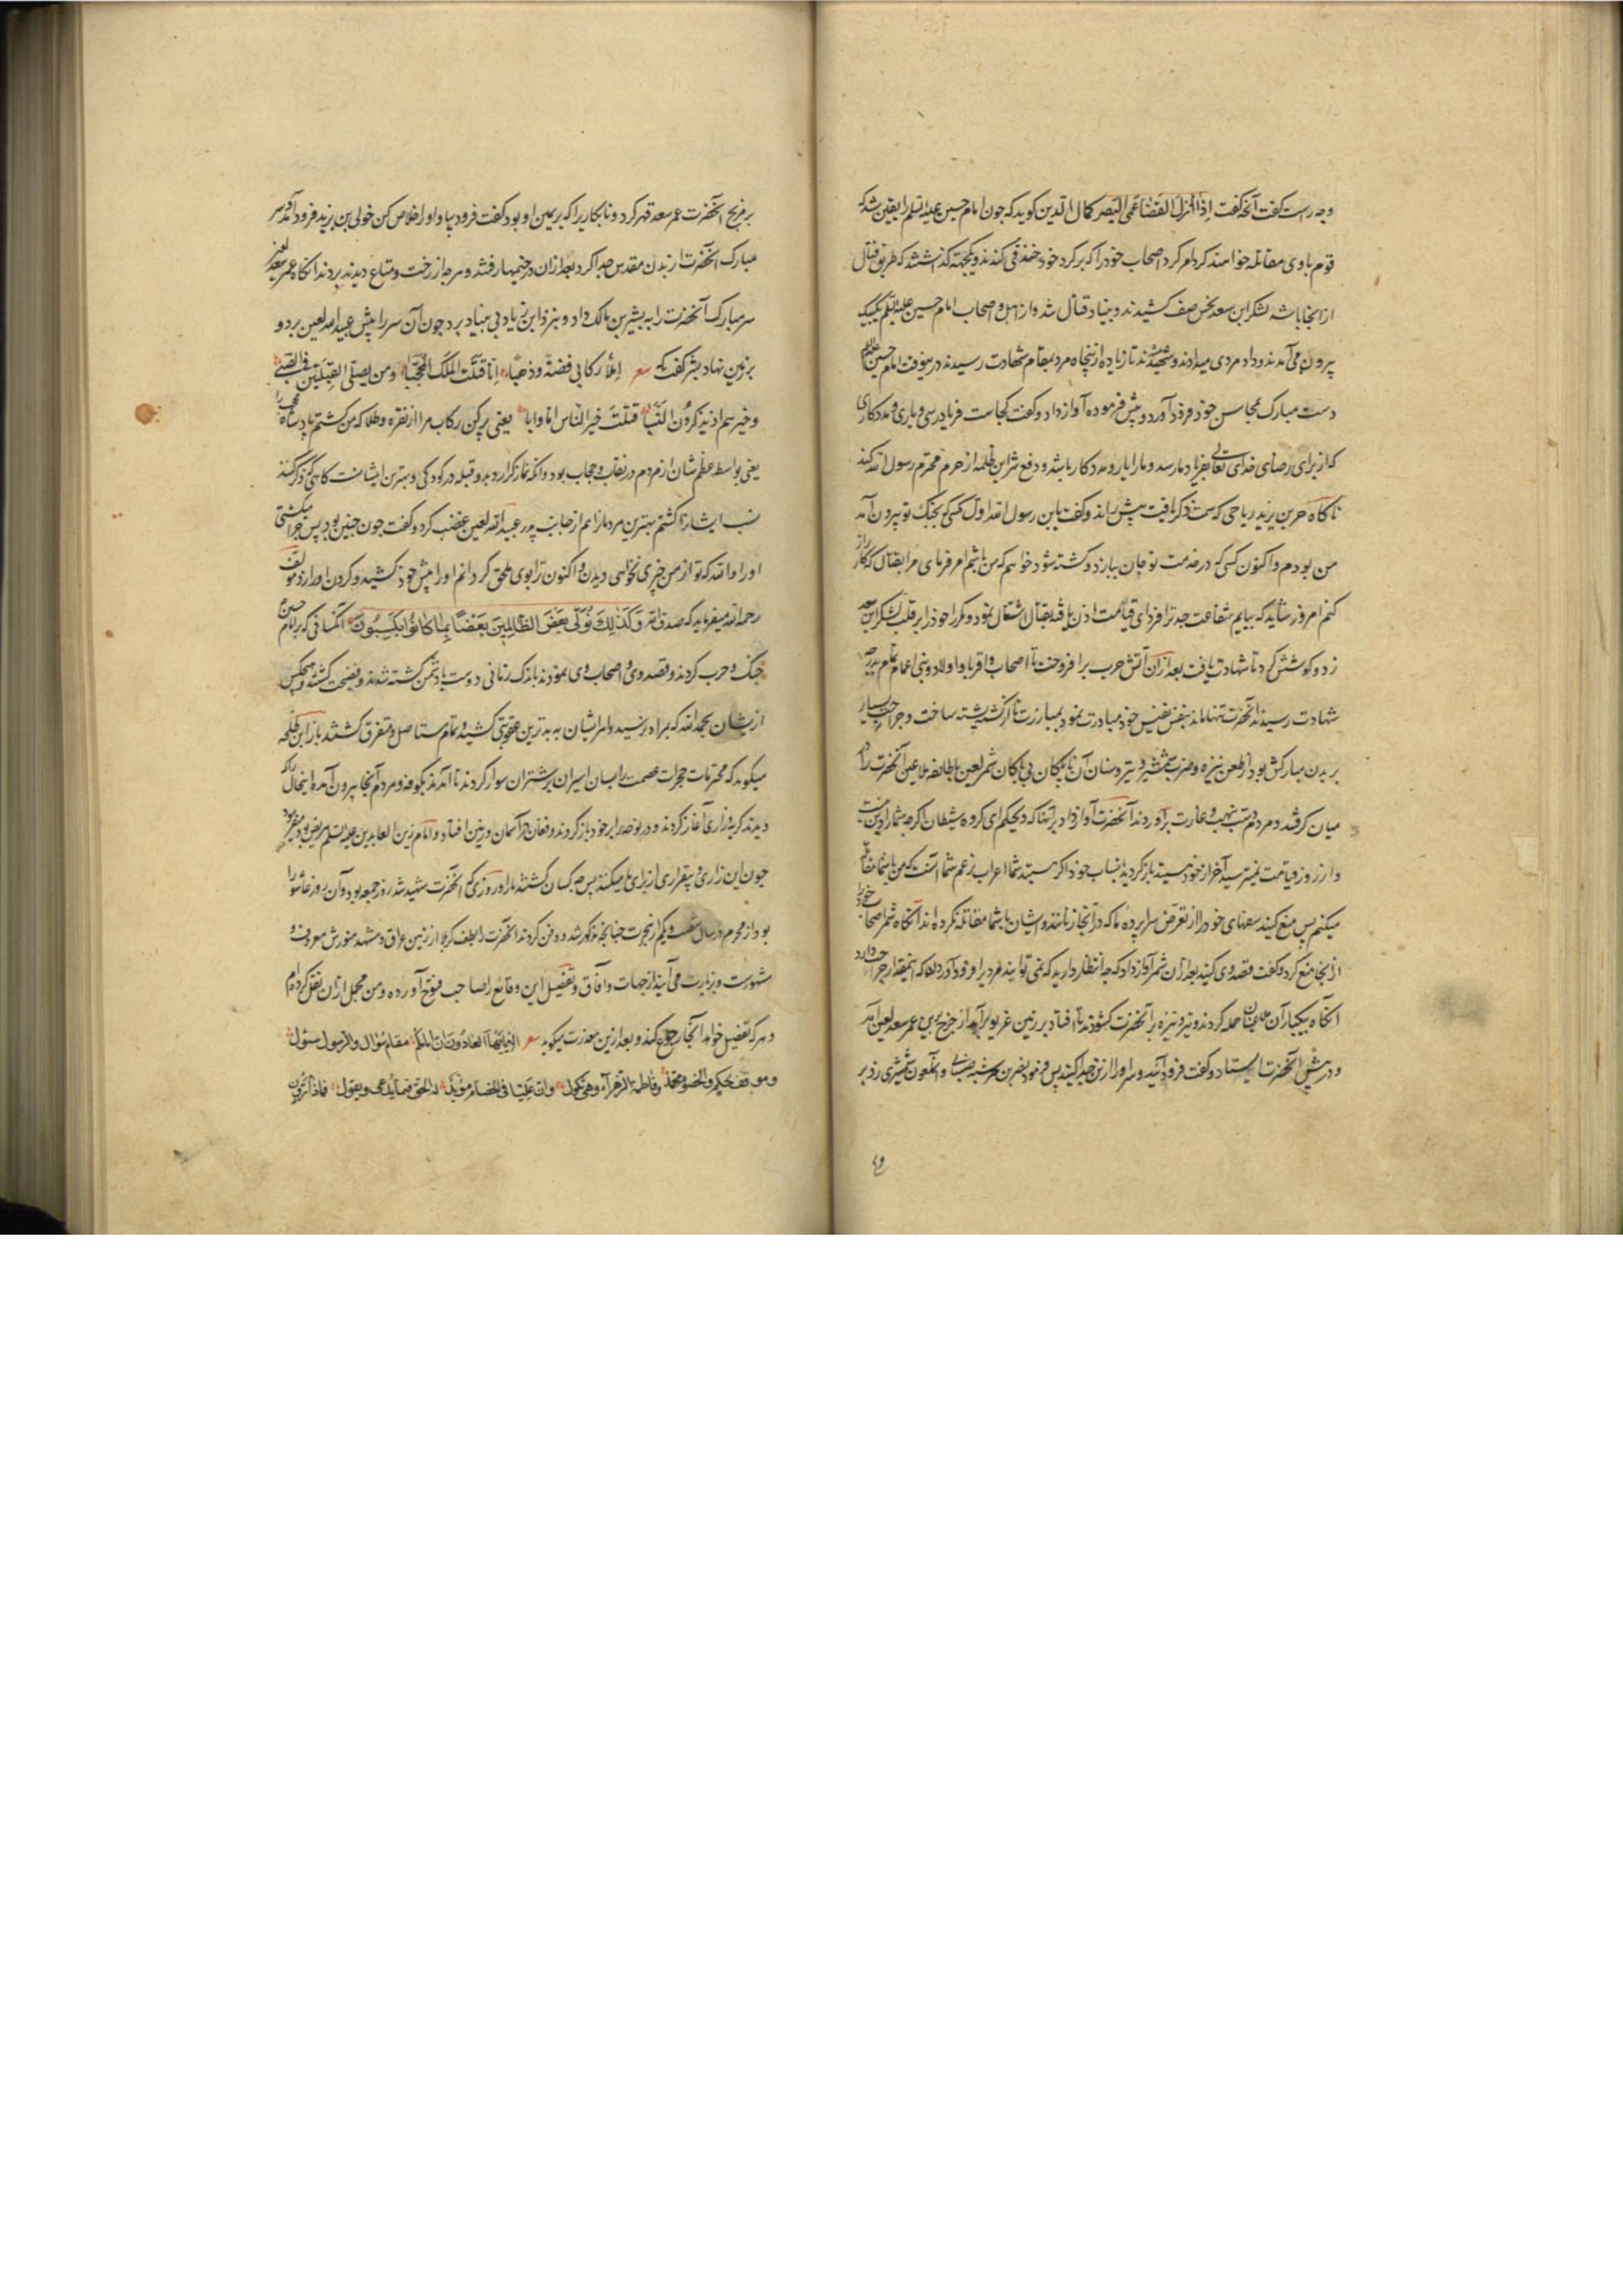 وجه راست گفت آنکه گفت اِذا انزل القضا عمی البصر کمال الدین کوید که جون امام حسین علیه السلم را یقین شد که
قوم با وی مقاتله خواهند کرد امر کرد اصحاب خود را که بر کرد خود خندقی کندند و یکجهته کذاشتند که طریق قتال
از آنجا باشد لشکر ابن سعد نحس صف کشیدند و بنیاد قتال شد و از اهل و اصحاب امام حسین علیه السلم یک یک
بیرون می آمدند و داد مردی میدادند و شهید میشدند تا زیاده از پنجاه مرد بمقام شهادت رسیدند درینوقت امام حسین علیه السلم
دست مبارک بمحاسن خود فرود آورد و پیش فرموده آواز داد و گفت کجاست فریادرسی و یاری و مددکاری
که از برای رضای خدای تعالی بفریاد ما رسد و ما را یار و مددکار باشد و دفع شر این ظلمه از حرم محترم رسول الله کند
ناکاه حر بن یزید ریاحی که سمت ذکر یافت پیش راند و گفت یا بن رسول الله اول کسی که بجنک تو بیرون آمد
من بودم و اکنون کسی که در خدمت تو جان ببازد و کشته شود خواهم که من باشم امر فرمای مرا بقتال که کارزار
کنم امروز شاید که بیابم شفاعت جد ترا فردای قیامت اذن یافته بقتال اشتغال نمود و مکرر خود را بر قلب لشکر ابن سعد
زد و کوشش کرد تا شهادت یافت بعد از آن آتش حرب برافروخت تا اصحاب و اقربا و اولاد و بنی اعمام تمام بدرجه
شهادت رسیدند آنحضرت تنها ماند بنفس نفیس خود مبادرت نمود بمبارزت تا از کشته پشته ساخت و جراحت بسیار
بر بدن مبارکش بود از طعن نیزه و ضرب شمشیر و تیر و سنان آن ناپاکان بی باکان شمر لعین با طایفه ملاعین آنحضرت را در
میان کرفتند و مردم دست بنهب و غارت برآوردند آنحضرت آواز داد بر آنها که ویحکم ای کروه شیطان اکر چه شما را دین نیست
و از روز قیامت نمیترسید آخر از خود بترسید باز کردید بانساب خود اکر هستید شما اعراب بزعم شما آنست که من با شما مقاتله
میکنم پس منع کنید سفهای خود را از تعرض سراپرده ما که در آنجا زنانند و ایشان با شما مقاتله نکرده اند آنکاه شمر اصحاب خود را
از آنجا منع کرد و گفت قصد وی کنید بعد از آن شمر آواز داد که جه انتظار دارید که نمی توانید مرد را فرود آورد که اینمقدار جراحت دارد
آنکاه بیکبار آن ملاعینان حمله کردند و تیر و نیزه بر آنحضرت کشودند تا افتاد بر زمین غریو برآمد از خرج حریص عمر سعد لعین آمد
و در پیش آنحضرت ایستاد و گفت فرود آیید و سر او را از تن جدا کنید پس فرمود نضر بن خرشبه ضبابی و آنملعون شمشیری زد بر
بر ذبح آنحضرت عمر سعد قهر کرد و نابکاری را که بر یمین او بود گفت فرود بیا و او را خلاص کن خولی بن یزید فرود آمد و سر
مبارک آنحضرت از بدن مقدس جدا کرد بعد از آن در خیمها رفتند و هر جا از رخت و متاع دیدند بردند آنکاه عمر سعد لعین
سر مبارک آنحضرت را به بشیر بن مالک داد و بنزد ابن زیاد بی بنیاد برد جون آن سر را پیش عبید الله لعین برد و
بر زمین نهاد بشر گفت که شعر املأ رکابی فضة و ذهبا انا قتلت الملک المحجبا ومن یصلی القبلتین فی الصبی
وخیرهم اذ یذکرون النسبا قتلت خیر الناس اما وابا یعنی پر کن رکاب مرا از نقره و طلا که من کشتم پادشاه محجب را
یعنی بواسطه عظم شان از مردم در نقاب و حجاب بود و آنکه نماز گزارد بدو قبله در کودکی و بهترین ایشانست کاهی که ذکر کنند
نسب ایشانرا کشتم بهترین مردمانرا هم از جانب پدر عبید الله لعین غضب کرد و گفت جون جنین بود پس جرا میکشتی
او را والله که تو از من خیری نخواهی دیدن و اکنون ترا بوی ملحق کردانم او را پیش خود کشید و کردن او را زد مولف
رحمه الله میفرماید که صدق الله وَكَذٰلِكَ نُوَلّي بَعْضَ الظّالِمينَ بَعْضًا بِما كانُوا يَكْسِبُونَ آنکسانی که بر امام حسین
جنک و حرب کردند و قصد وی و اصحاب وی نمودند باندک زمانی دوست یا دشمن کشته شدند و فضیحت کشتند و هیجکس
از ایشان بحمد الله که بمراد نرسید و امر ایشان به بدترین عقوبتی کشید و تمام مستاصل و متفرق کشتند باز ابن طلحه
میکوید که محترمات حجرات عصمت را بسان اسیران بر شتران سوار کردند تا آمدند بکوفه و مردم آنجا بیرون آمده اینحال را که
دیدند کریه و زاری آغاز کردند و در نوحه بر خود باز کردند و فغان در آسمان و زمین افتاد و امام زین العابدین علیه السلم مریض بود فرمود
جون این زاری و بیقراری از برای ما میکنند پس جه کسان کشتند ما را و روزی که آنحضرت شهید شد روز جمعه بود و آن روز عاشورا
بود از محرم در سال شصت و یکم از هجرت جنانجه مذکور شد و دفن کردند آنحضرت را بطف کربلا از زمین عراق و مشهد منورش معروف و
مشهورست و بزیارت می آیند از جهات و آفاق و تفصیل این وقایع را صاحب فتوح آورده و من مجمل از آن نقل کرده ام
و هر که تفصیل خواهد آنجا رجوع کند و بعد ازین معذرت میکوید شعر الا ایها العادون ان امامکم مقام سؤال والرسول سئول
وموقف حکم والخصوم محمد وفاطمة الزهراء وهی ثکول وان علیا فی الخصام مؤید له الحق فیما یدعی ویقول فماذا تردون